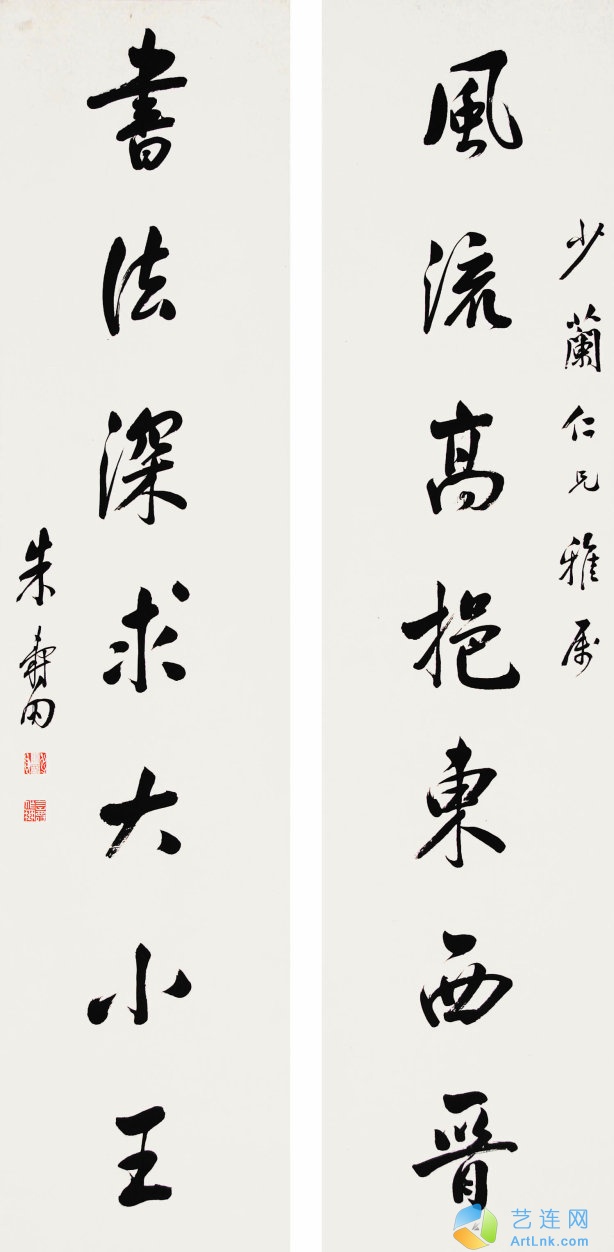 少蘭仁兄雅属
風流高挹東西晉
書法深求大小王
朱壽田
艺连网
ArtLnk.com